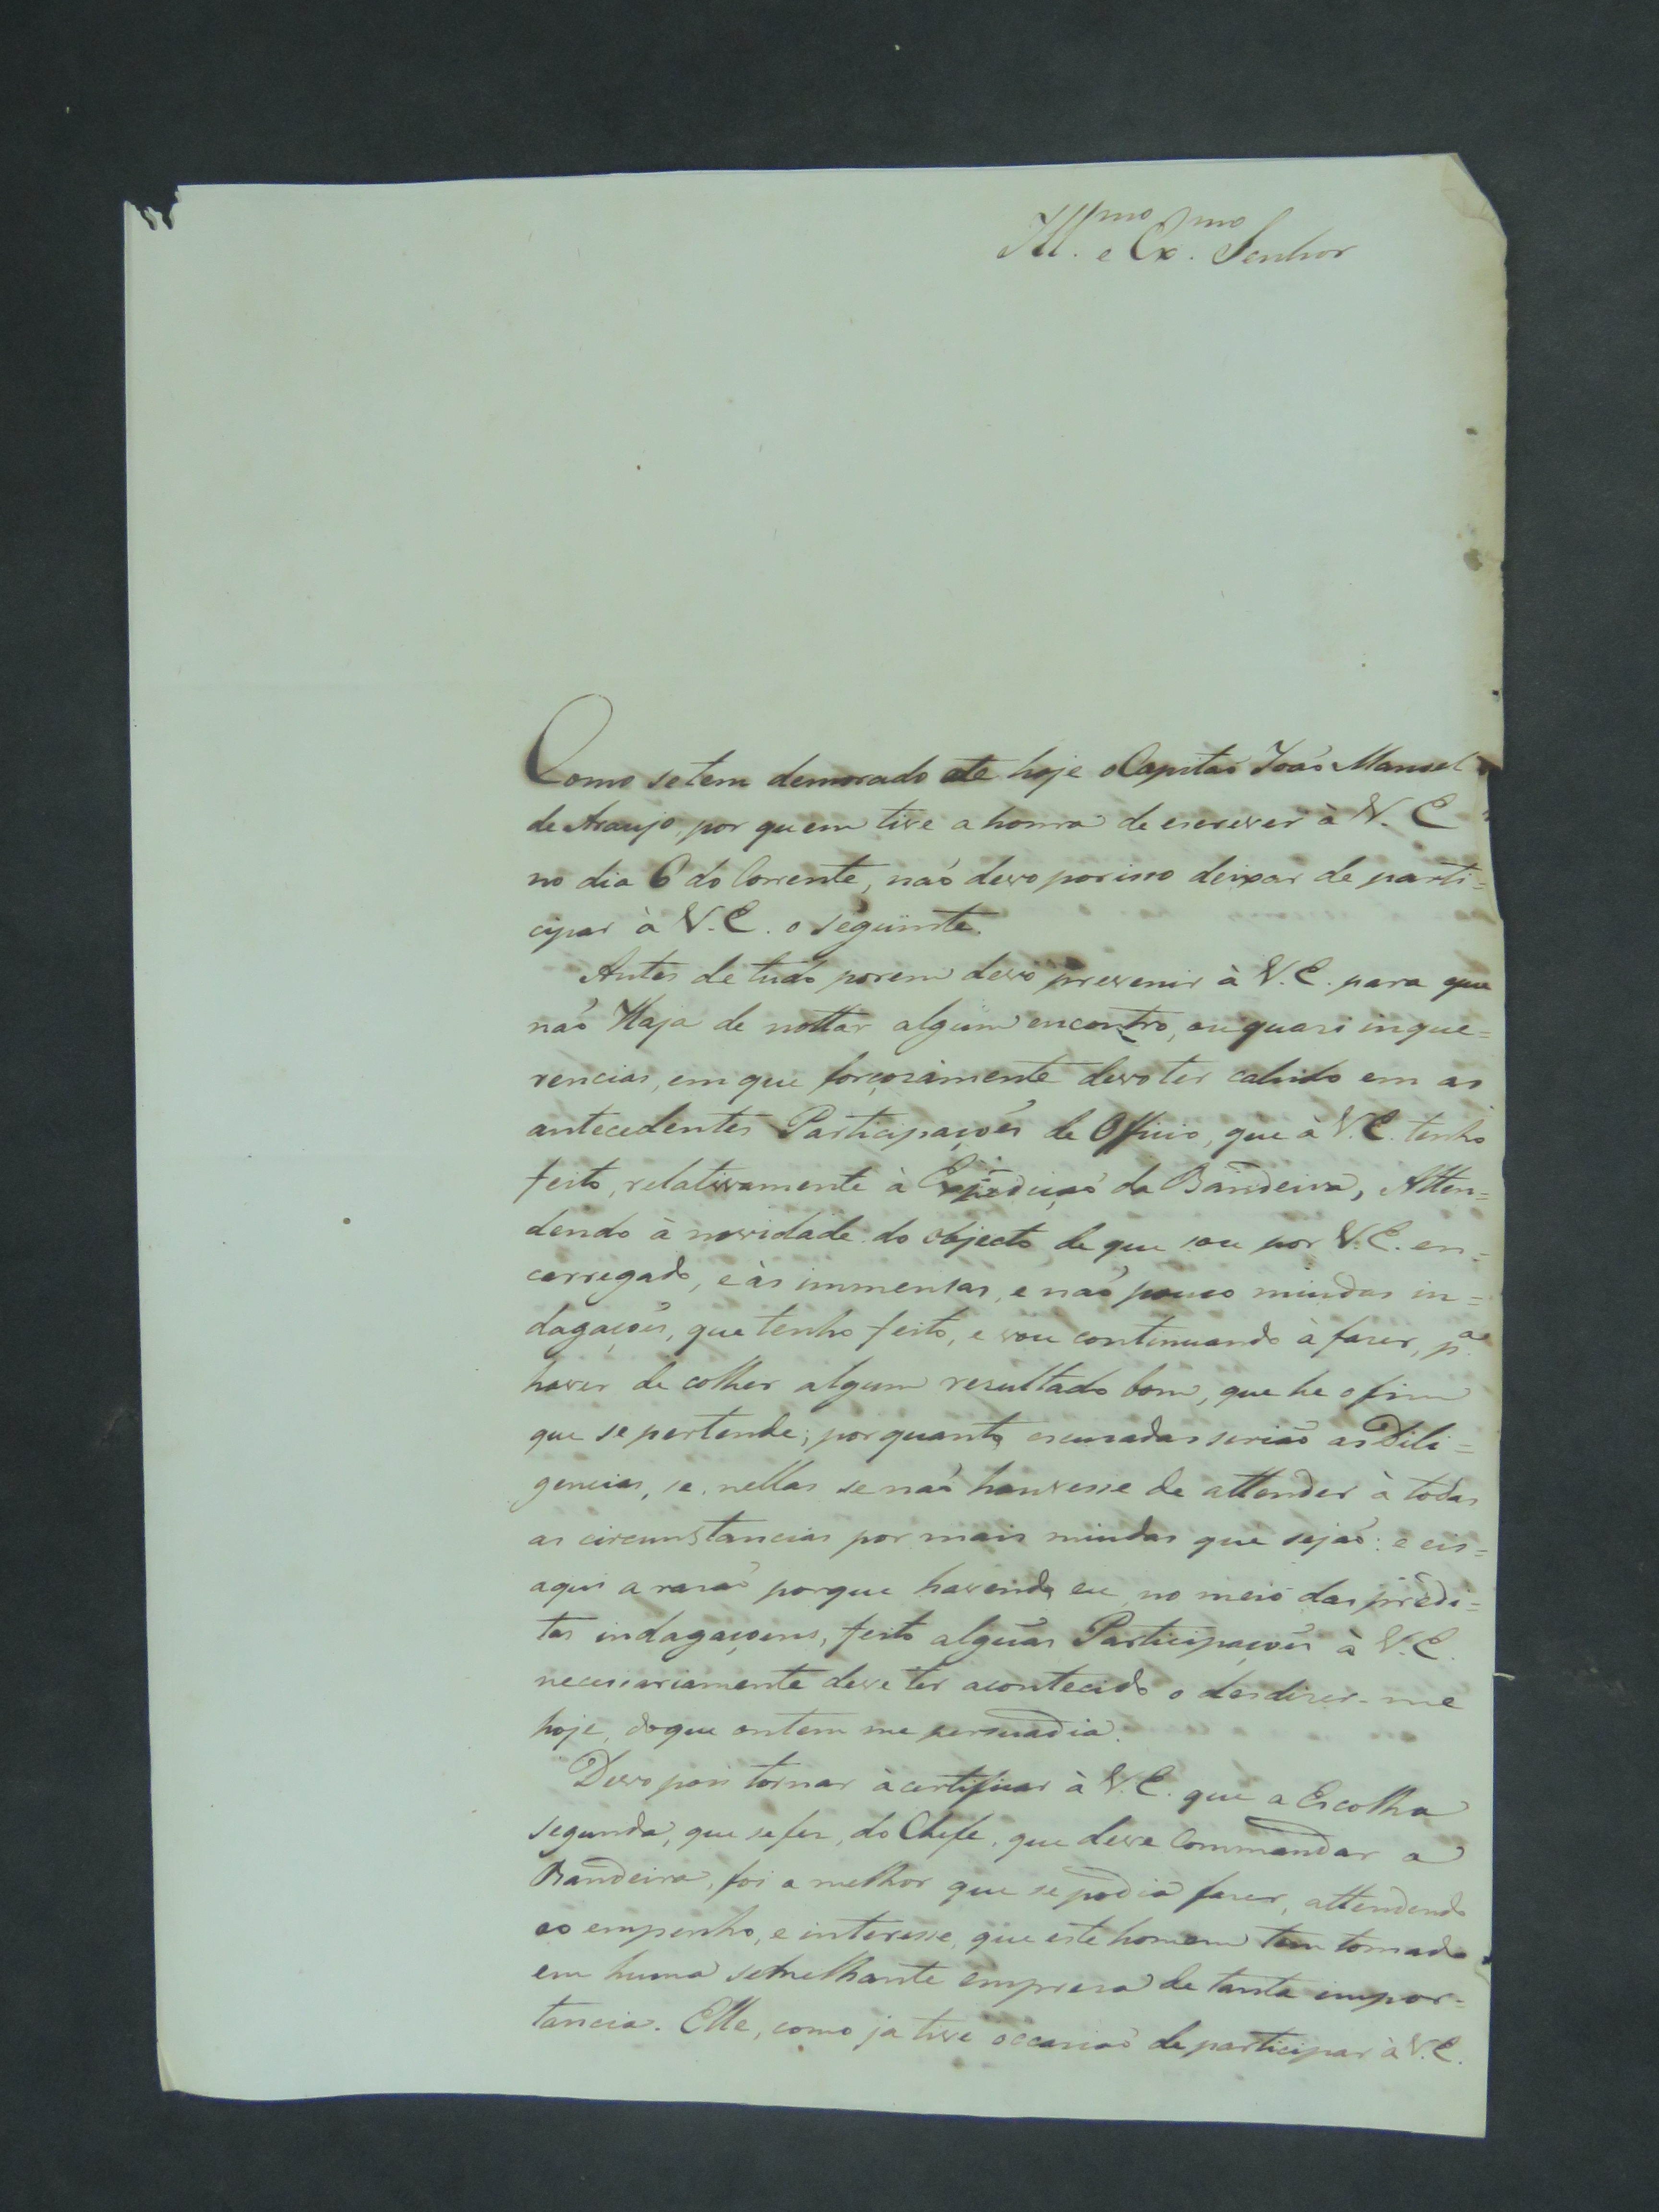 Ill.mo e Ex.mo Senhor
Como se tem demorado ate hoje o Capitaõ Joaõ Manoel
de Araujo, por quem tive a honra de escrever à V. E.
no dia 6 do Corrente, naõ devo por isso deixar de parti=
cipar à V. E. o seguinte.
Antes de tudo porem devo prevenir à V. E. para que
naõ Haja de nottar algum encontro, ou quasi inque=
rencias, em que forçozamente devo ter cahido em as
antecedentes Participaçoẽs de Officio, que à V. E. tenho
feito, relativamente à Expediçaõ da Bandeira, Atten=
dendo à novidade do objecto de que sou por V. E. en=
carregado, e às immensas, e naõ pouco miudas in=
dagaçoẽs, que tenho feito, e vou continuando à fazer, p.a
haver de colher algum resultado bom, que he o fim
que se pertende; por quanto escusadas seriaõ as Dili=
gencias, se nellas se naõ houvesse de attender à todas
as circunstancias por mais miudas que sejaõ: e eis=
aqui a razaõ porque havendo eu, no meio das predi=
tas indagaçoens, feito algũas Participaçoẽs à V. E.
necessariamente deve ter acontecido o desdizer-me
hoje, do que ontem me persuadia.
Devo pois tornar à certificar à V. E. que a Escolha
segunda, que se fez, do Chefe, que deve Commandar a
Bandeira, foi a melhor que se podia fazer, attendendo
ao empenho, e interesse, que este homem tem tomado
em huma semelhante empresa de tanta impor=
tancia. Elle, como ja tive occasiaõ de participar à V. E.